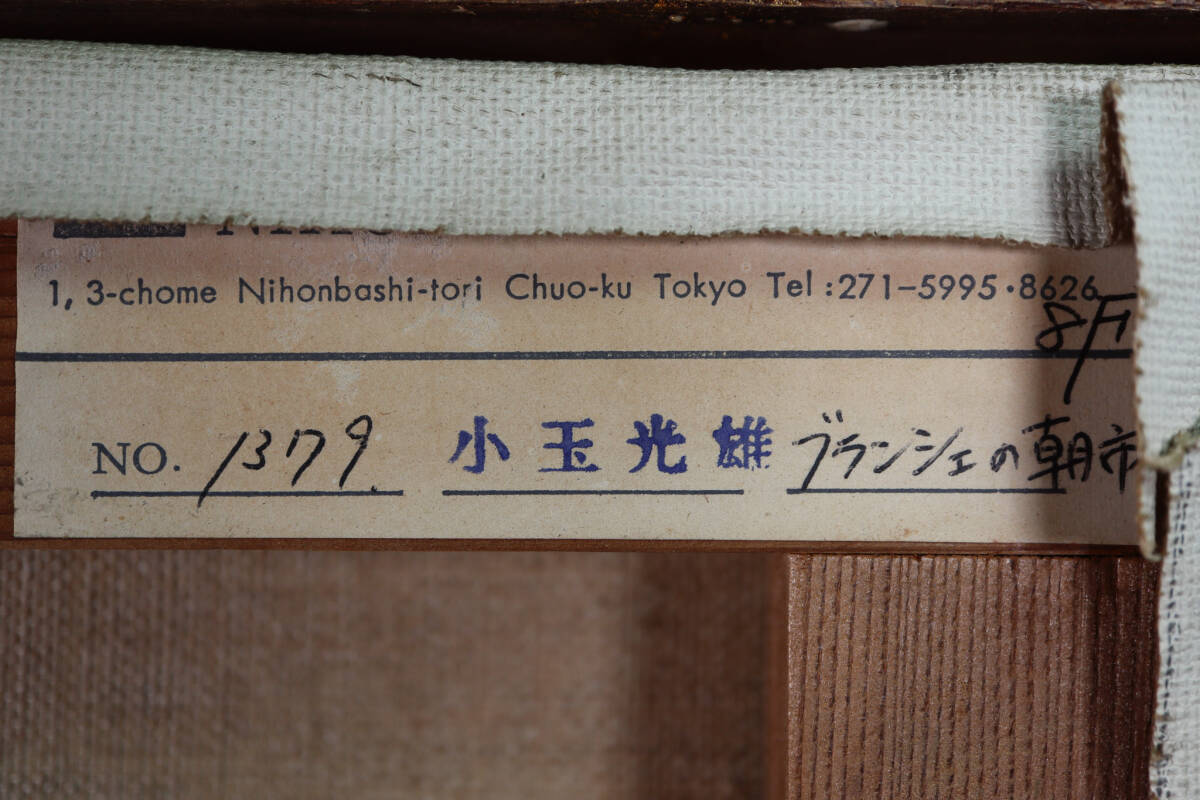 1, 3-chome Nihonbashi-tori Chuo-ku Tokyo Tel:271-5995・8626
8F
NO. 1379 小玉光雄 ブランシェの朝市